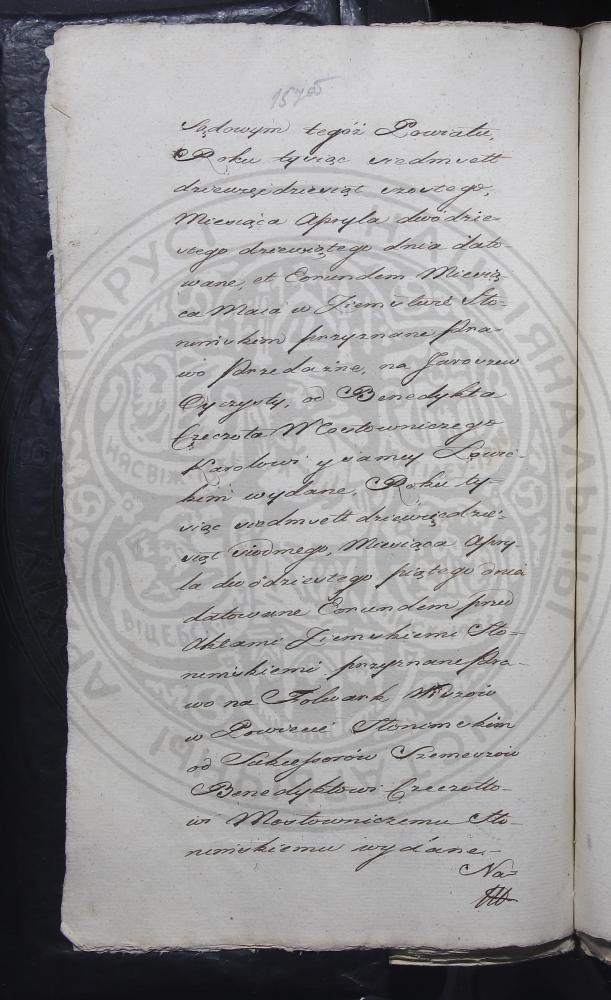 1570
Sądowym tegóż Powiatu,
Roku tysiąc siedmsett
dziewięćdziesiąt szostego,
Miesiąca Apryla dwódzie-
stego dziewiątego dnia dato-
wane, et Eorundem Miesią-
ca Maia w Ziemstwie Sło-
nimskim przyznane Pra-
wo Przedażne, na Jaroszew
Oyczysty, od Benedykta
Czeczota Mostowniczego
Karolowi y samey
kim wydane, Roku ty-
siąc siedmsett dziewięcdzie-
siąt siodmego, Miesiąca Apry-
la dwódziestego piątego dnia
datowane Eorundem przed
Aktami Ziemskiemi Sło-
nimskiemi przyznane Pra-
wo na Folwark
w Powiecie Słonimskim
od Sukcessorów
Benedyktowi Czeczotto-
wi Mostowniczemu Sło-
nimskiemu wydane.-
Na=
НАСВІЖ
ВІЦЕБСК